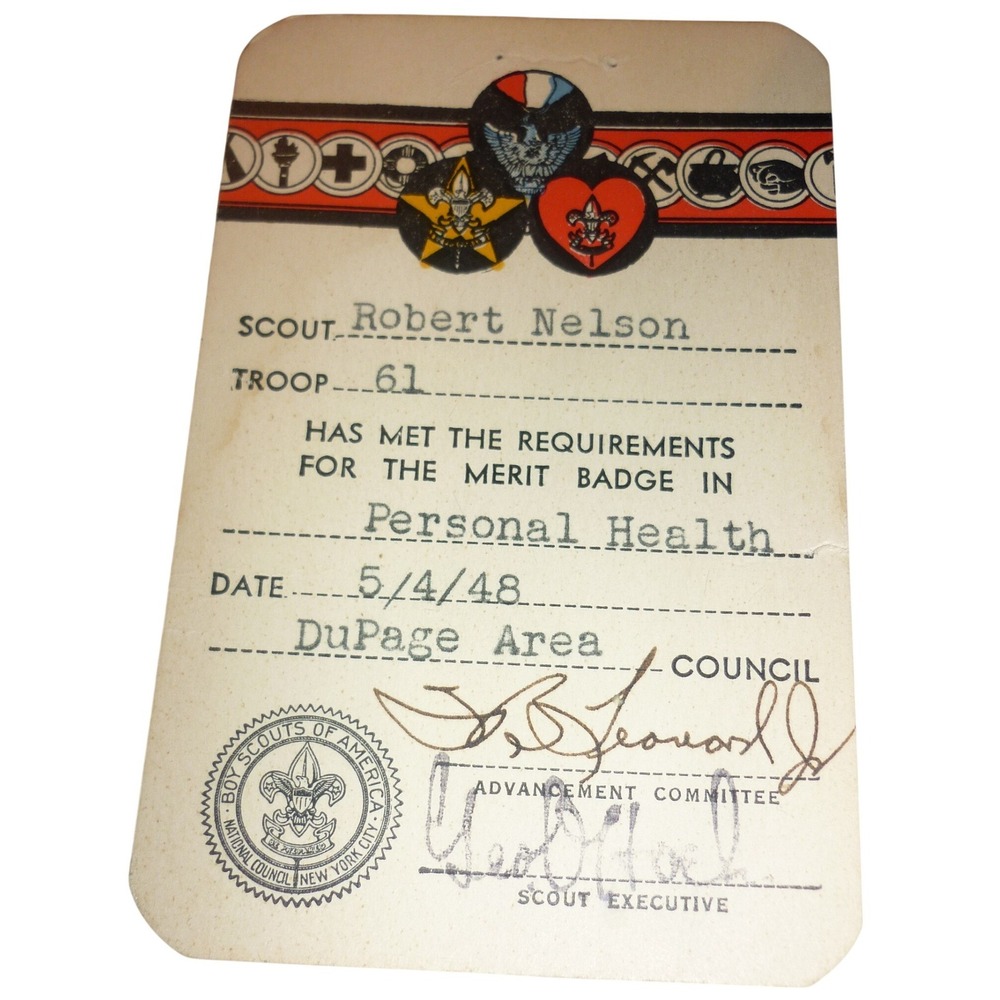 SCOUT Robert Nelson
TROOP 61
HAS MET THE REQUIREMENTS
FOR THE MERIT BADGE IN
Personal Health
DATE 5/4/48
DuPage Area COUNCIL
B Leonard Jr
ADVANCEMENT COMMITTEE
Geo.
SCOUT EXECUTIVE
BOY SCOUTS OF AMERICA
NATIONAL COUNCIL NEW YORK CITY